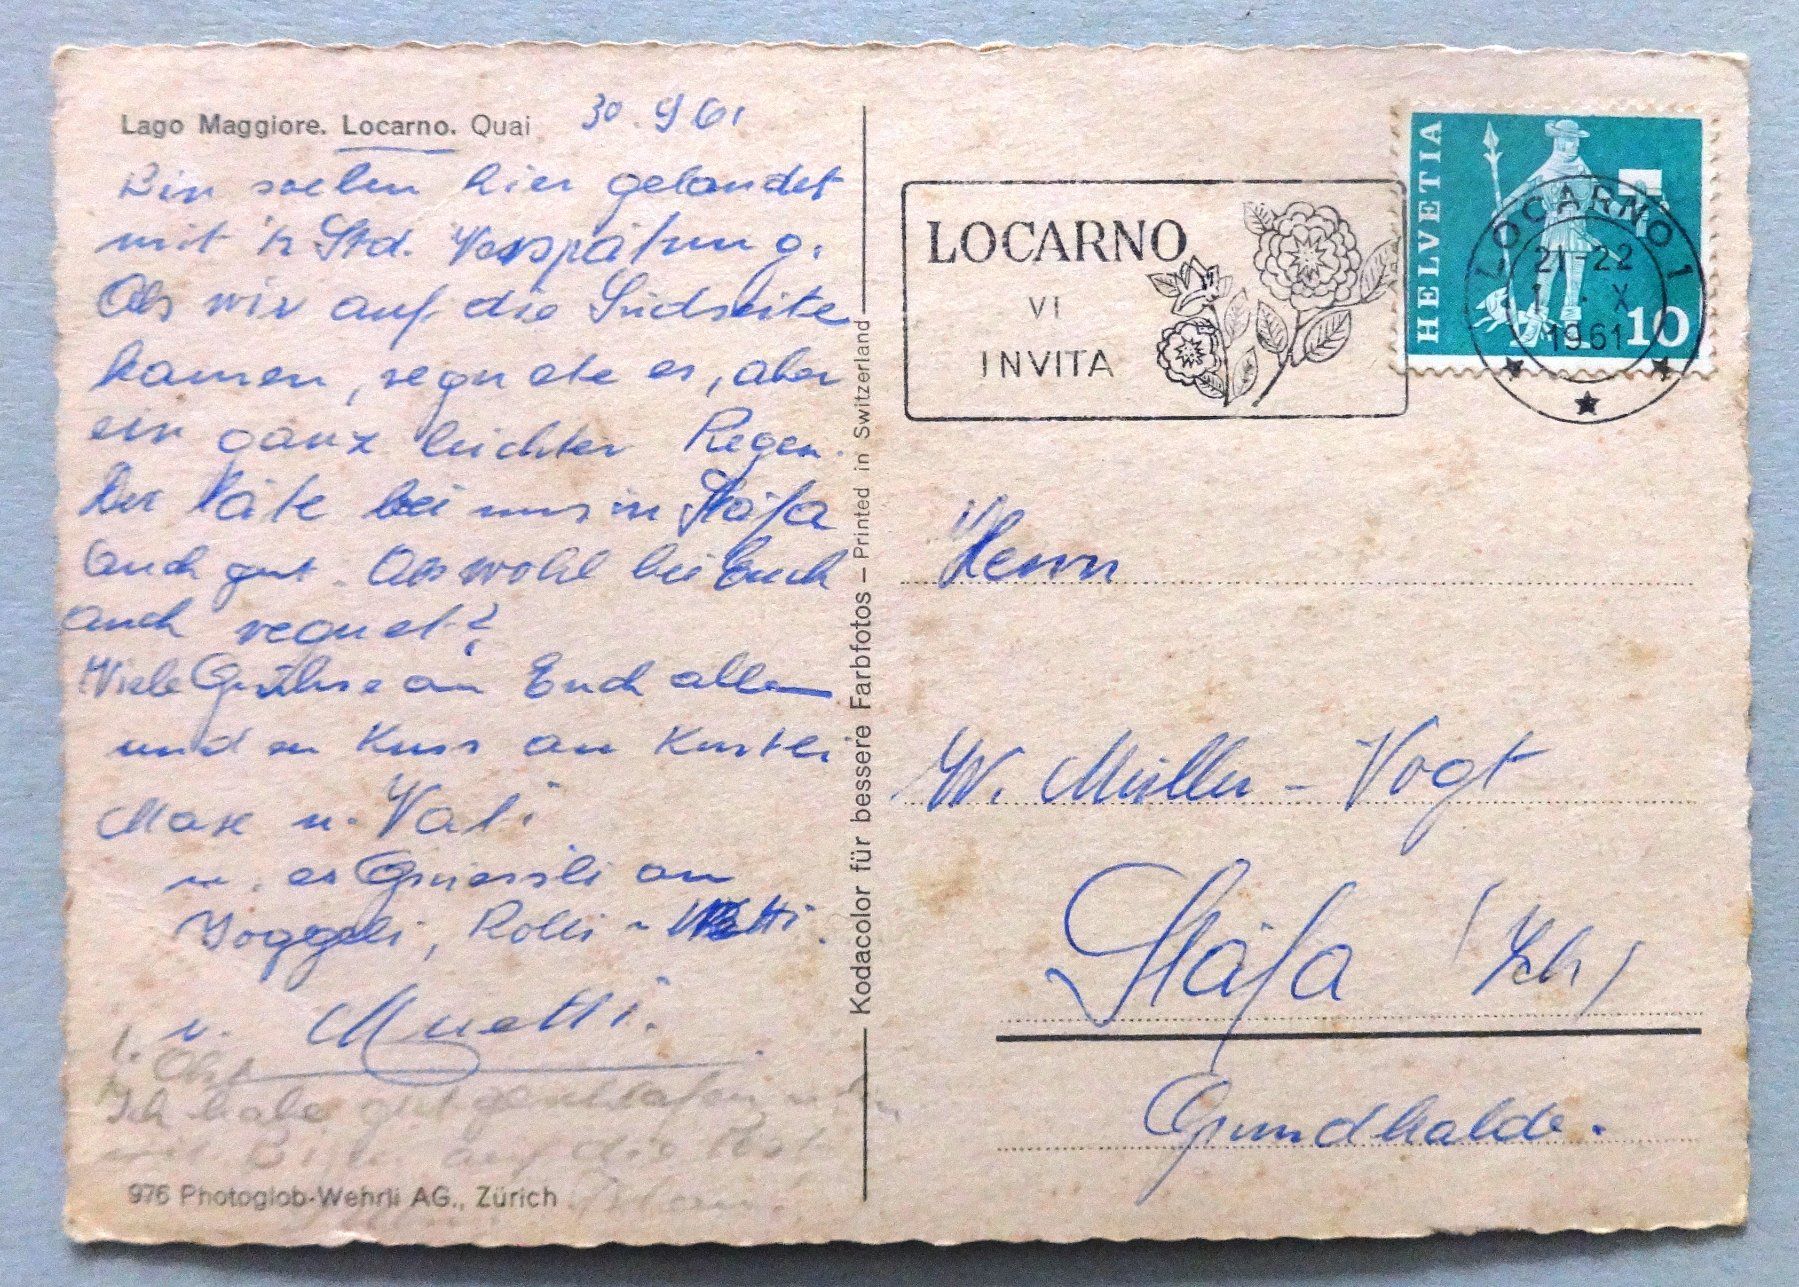 Lago Maggiore. Locarno. Quai
30.9.61
Bin soeben hier gelandet
mit ½ Std. Verspätung.
Als wir auf die Südseite
kamen, regnete es, aber
ein ganz leichter Regen.
Der täte bei uns in Stäfa
auch gut. Ob es wohl bei Euch
auch regnet?
Viele Grüsse an Euch allen
und en Kuss an
Max u. Vati
u. es Grüessli an
Joggeli, Rolli u.
v. Muetti.
1. Okt.
Ich habe gut geschlafen
auf die Post
976 Photoglob-Wehrli AG., Zürich
Kodacolor für bessere Farbfotos – Printed in Switzerland
LOCARNO
VI
INVITA
HELVETIA
10
LOCARNO 1
21-22
1. X
1961
Herrn
W. Müller-Vogt
Stäfa (Zch)
Grundhalde.